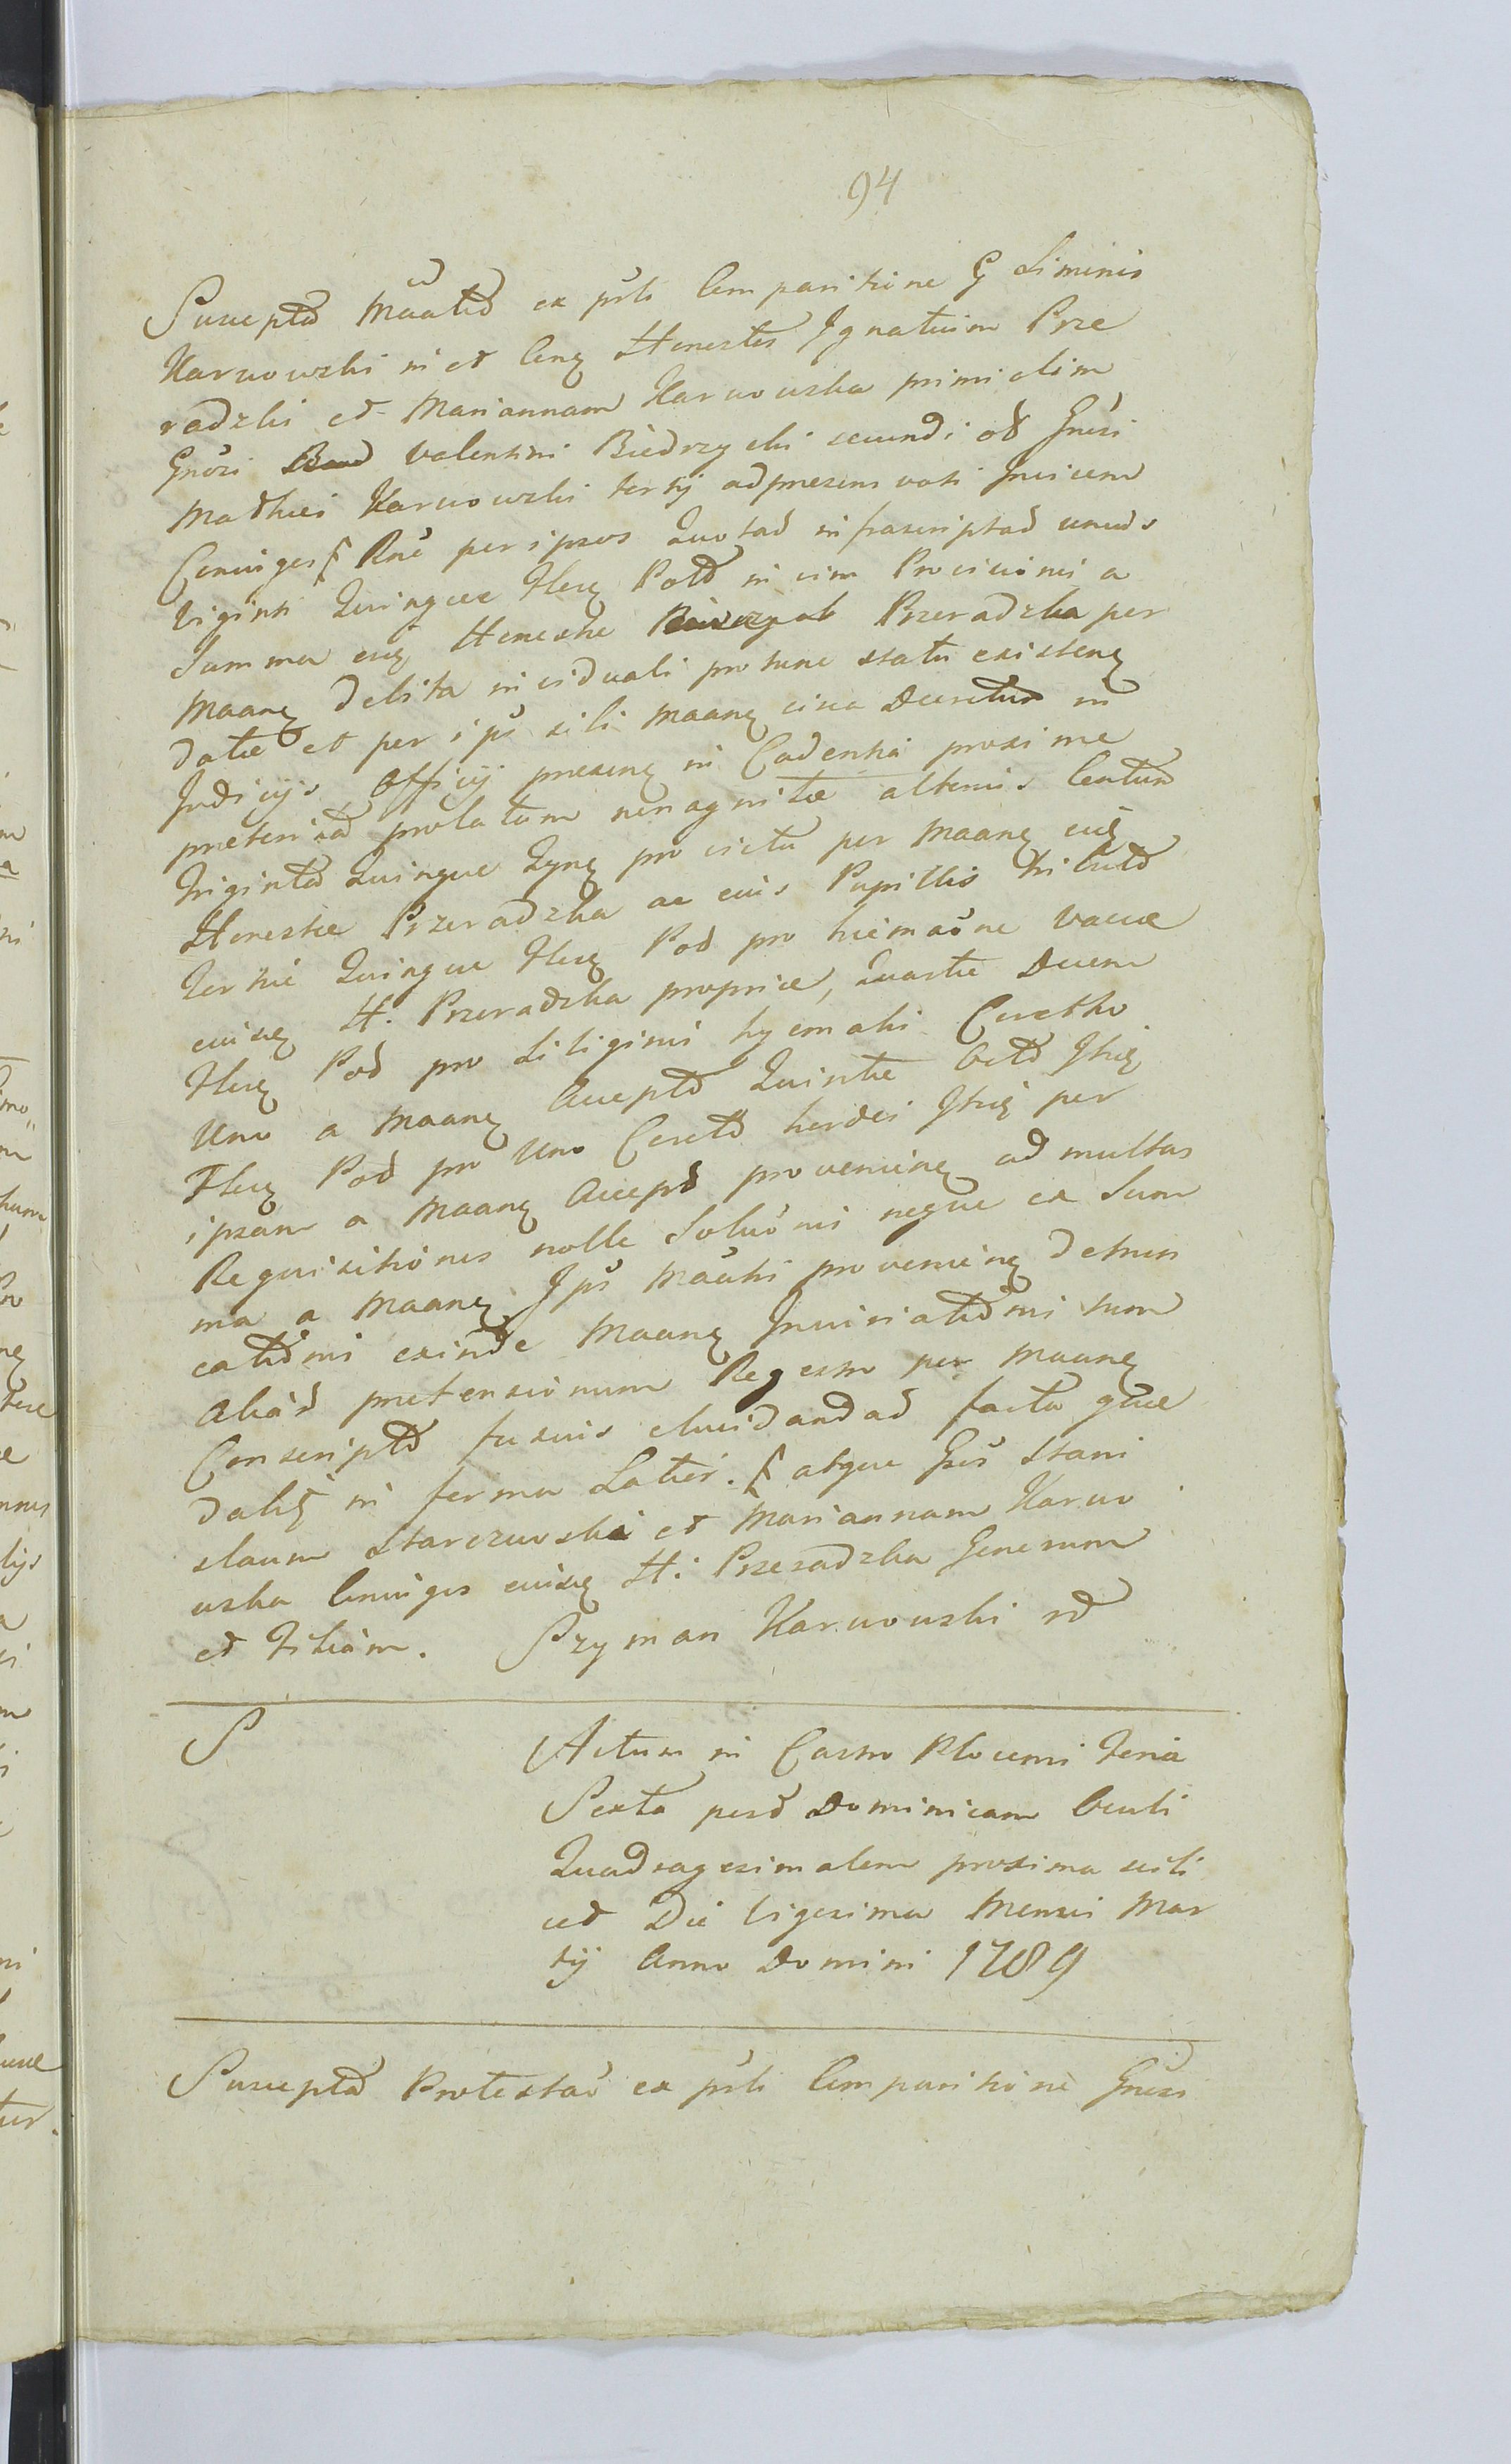 94
Suscepta Maatio ex prti Comparitione G Siminis
Karwowski in et Cong Honestos Ignatium Prze
radzki et Mariannam Karwowska primi olim
Gnosi Valentini Biedrzycki secundi ob Gnosi
Mathei Karwowski tertij adpresens voti Invicem
Coniuges Rne per ipsos Quotas infrascriptas unius
Viginti Quinque Flerq Pold in vim Provisionis a
Summa eidq Honestae Przeradzka per
Maang debita in viduali pro tunc statu existeng
datae et per ips sibi Maang circa Decretum in
Judicijs Officij praeseng in Cadentia proxime
praeterita prolatum non agnitae alterius Centum
Triginta Quinque Tynf pro victu per Maang eidq
Honestae Przeradzka ac eius Pupillis tributo
Tertiae Quinque Flerq Pol pro hiematione Vaccae
eiusdq H. Przeradzka propriae, Quartae Decem
Flerq Pol pro Siliginis hyemalis Coretho
Uno a Maang Accepto Quintae Octo Itidq
Flerq Pol pro Uno Coreto hordei Itidq per
ipsam a Maang Accepto provenieng ad multas
Requisitiones nolle Soluoni neque ex Sum
ma a Maang Ips Maati provenieng detrun
cationi exinde Maang Iniuriationi tum
Aliar praetensionum Regestro per Maang
Conscripto fusius elucidandar facta
dalq in forma Latiori. atque Gsos Stani
slaum Starczewski et Mariannam Karwo
wska Coniuges eiusdq H. Przeradzka Generum
et Filiam. Szymon Karwowski
S
Actum in Castro Plocensi Feria
Sexta post Dominicam Oculi
Quadragesimalem proxima scili
cet Die Vigesima Mensis Mar
tij Anno Domini 1789
Suscepta Protestao ex prti Comparitione Gnosi